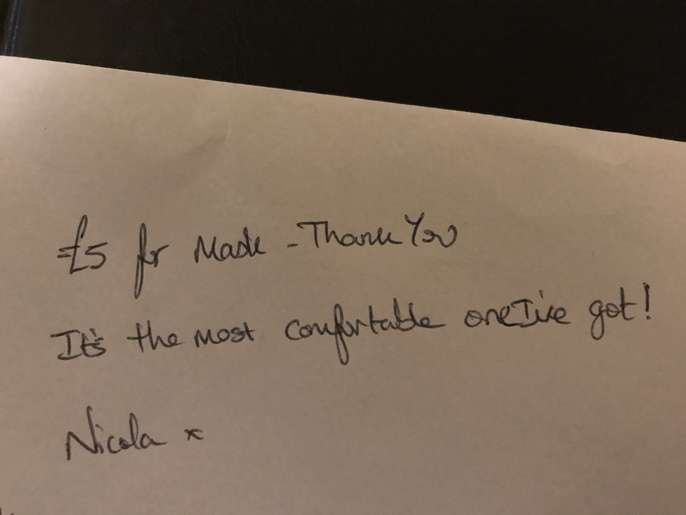 £5 for Mask - Thank You
It's the most comfortable one I've got!
Nicola x